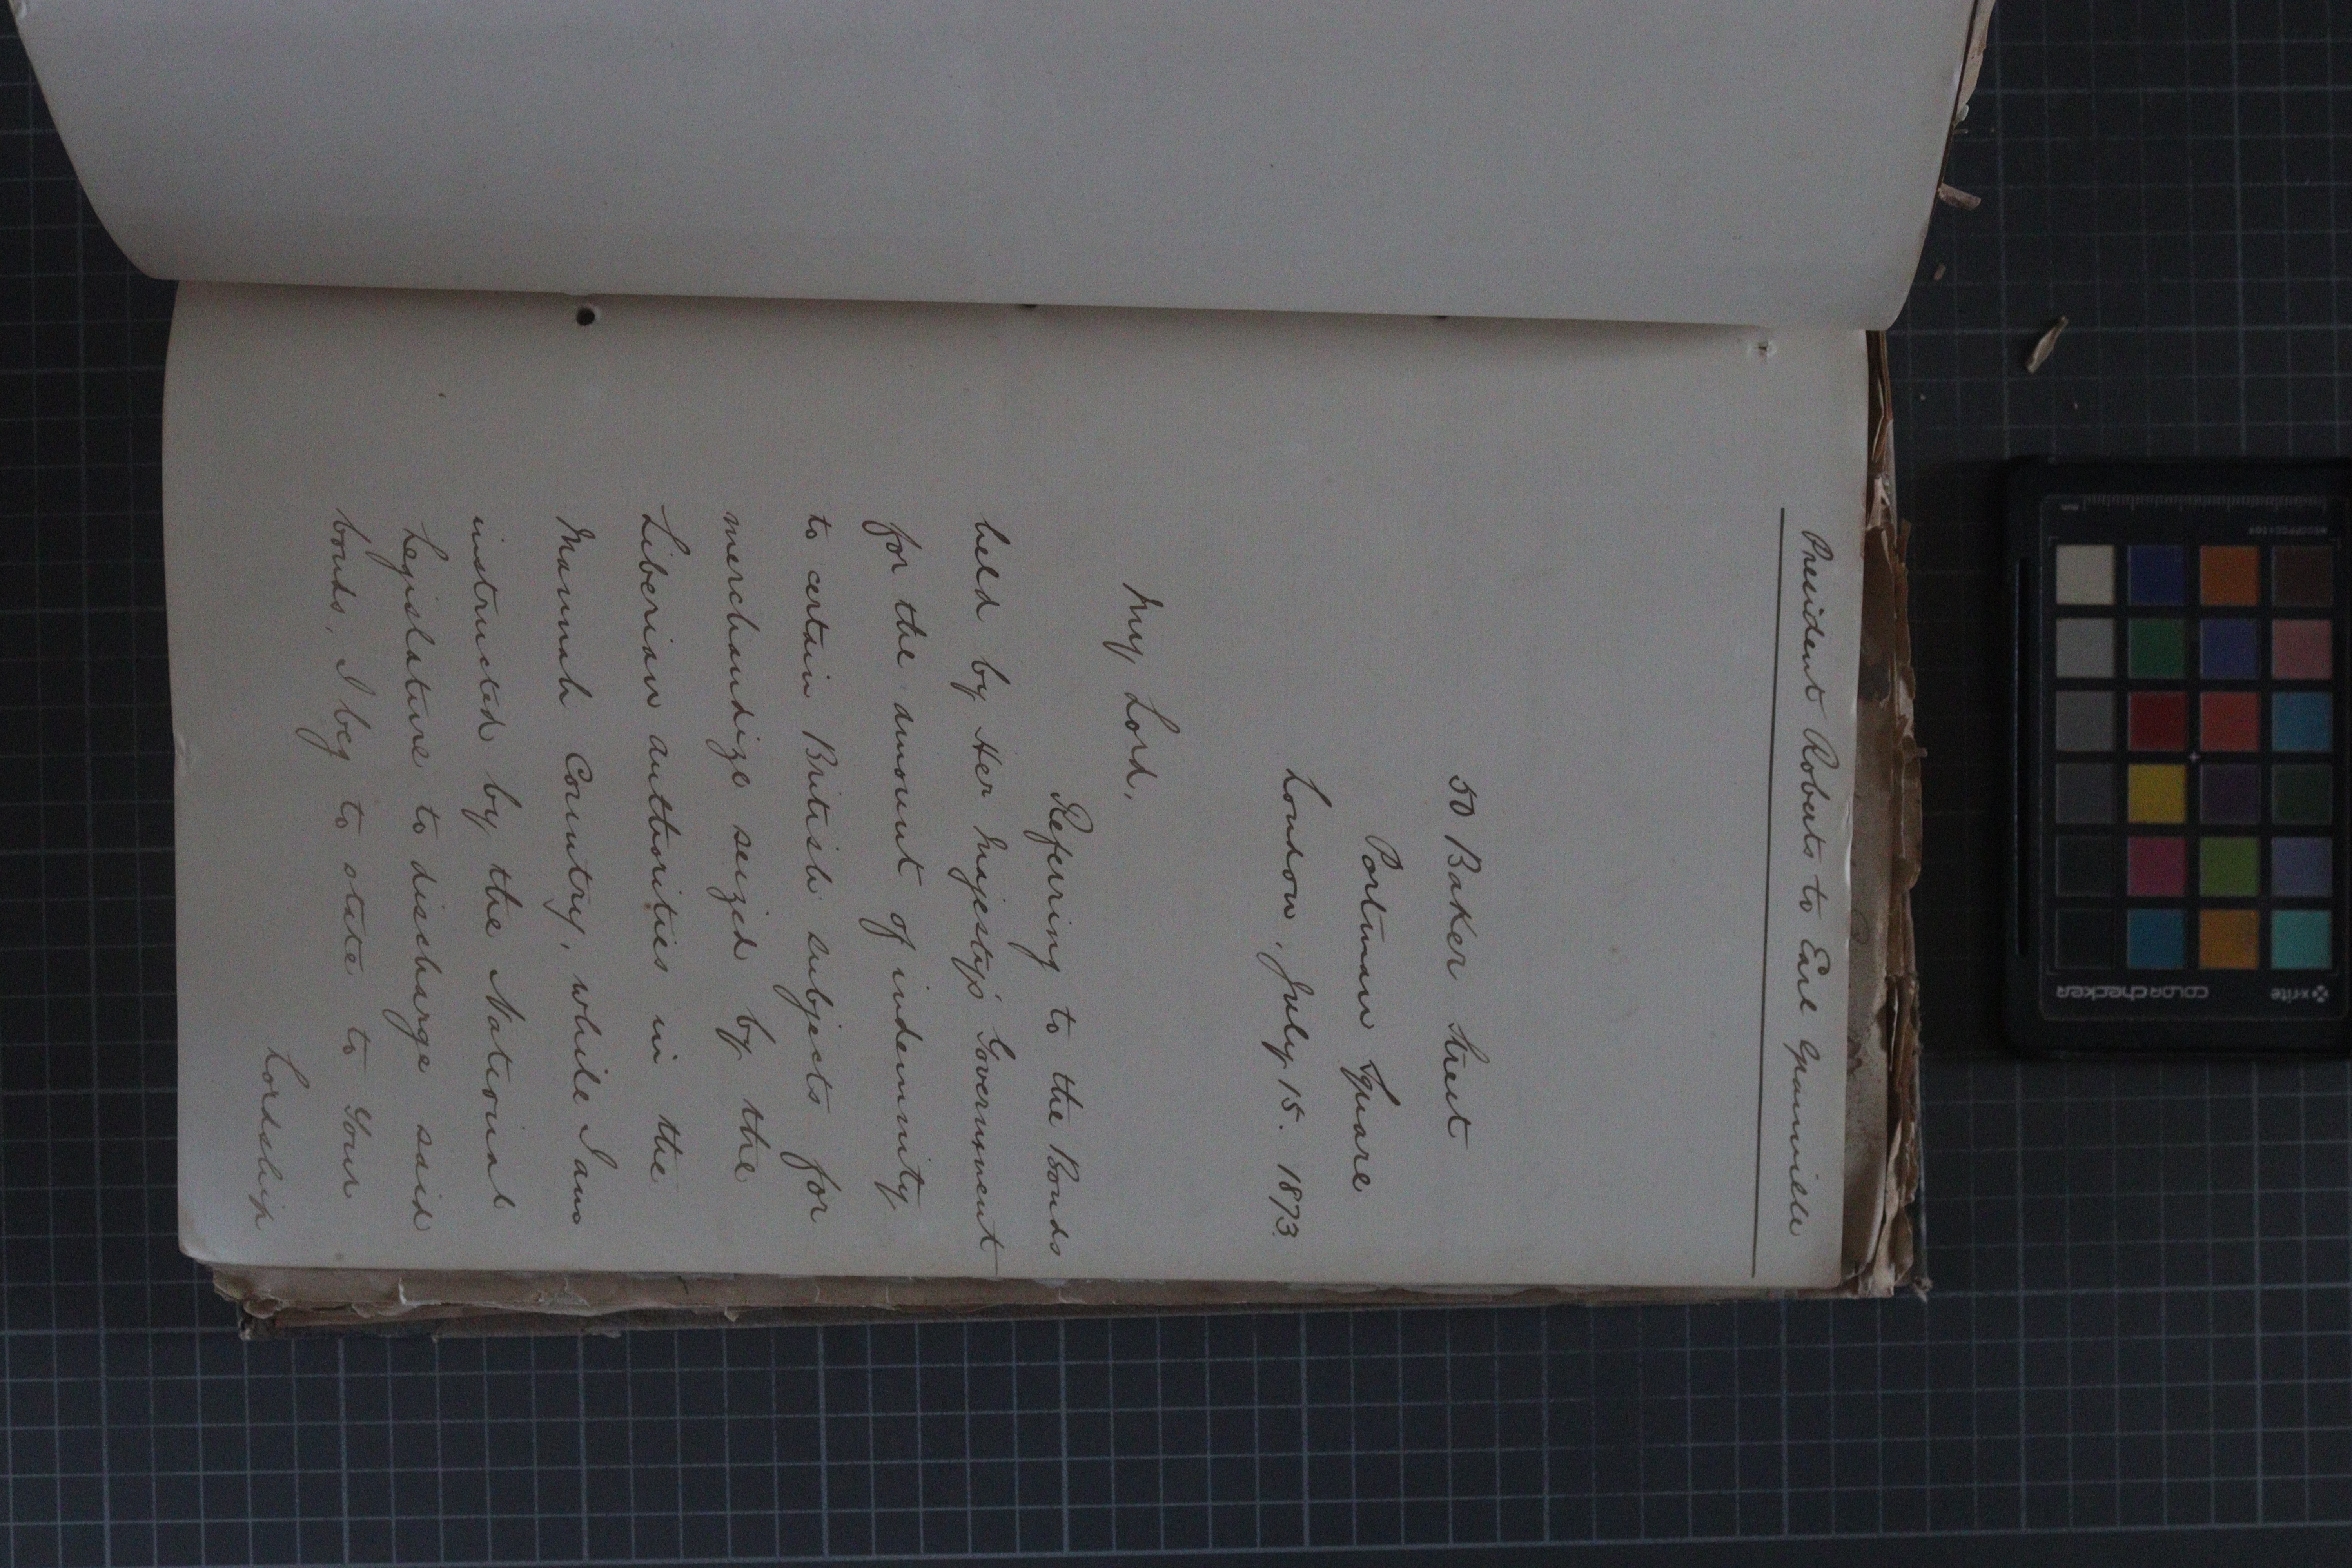 President Roberts to Earl Granville
50 Baker Street
Portman Square
London, July 15. 1873
My Lord,
Referring to the Bonds
held by Her Majesty's Government
for the amount of indemnity
to certain British subjects for
merchandize seized by the
Liberian authorities in the
Mannah Country, while I am
instructed by the National
Legislature to discharge said
bonds, I beg to state to Your
Lordship
x-rite
colorchecker